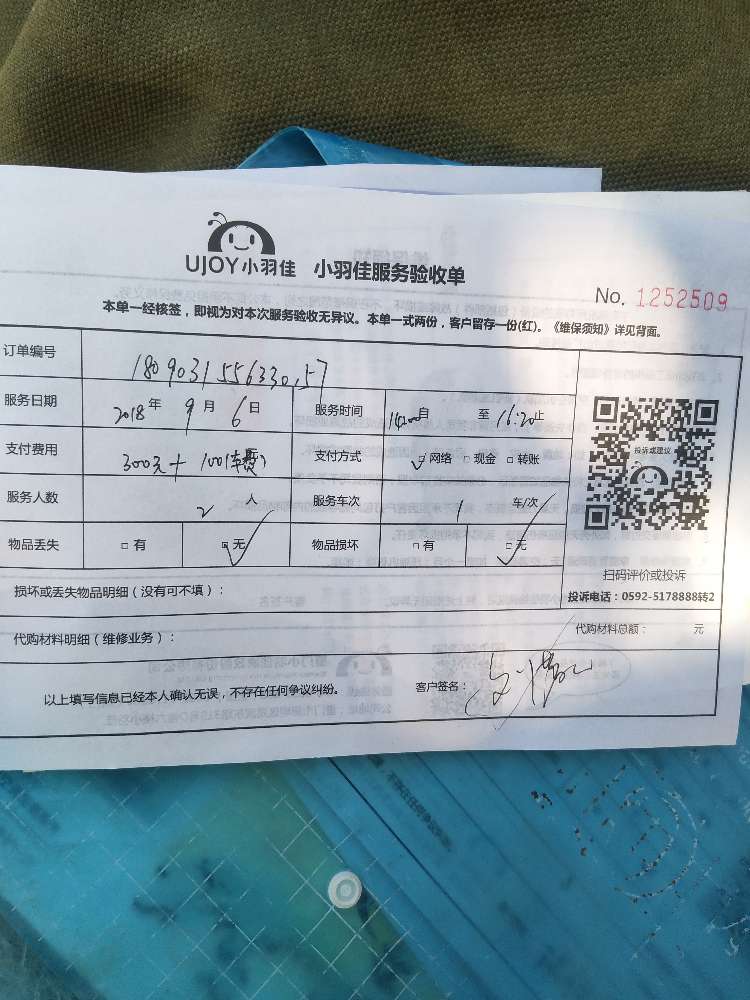 UJOY小羽佳 小羽佳服务验收单
No. 1252509
本单一经核签，即视为对本次服务验收无异议。本单一式两份，客户留存一份(红)。《维保须知》详见背面。
订单编号 1809031556330.57
服务日期 2018年 9月 6日 服务时间 14:00自 至 16:20止
支付费用 300元+100(车费) 支付方式 ☑网络 □现金 □转账
投诉或建议
服务人数 2 人 服务车次 1 车/次
物品丢失 □有 ☑无 物品损坏 □有 ☑无
扫码评价或投诉
损坏或丢失物品明细（没有可不填）：
投诉电话：0592-5178888转2
代购材料明细（维修业务）： 代购材料总额： 元
以上填写信息已经本人确认无误，不存在任何争议纠纷。 客户签名：